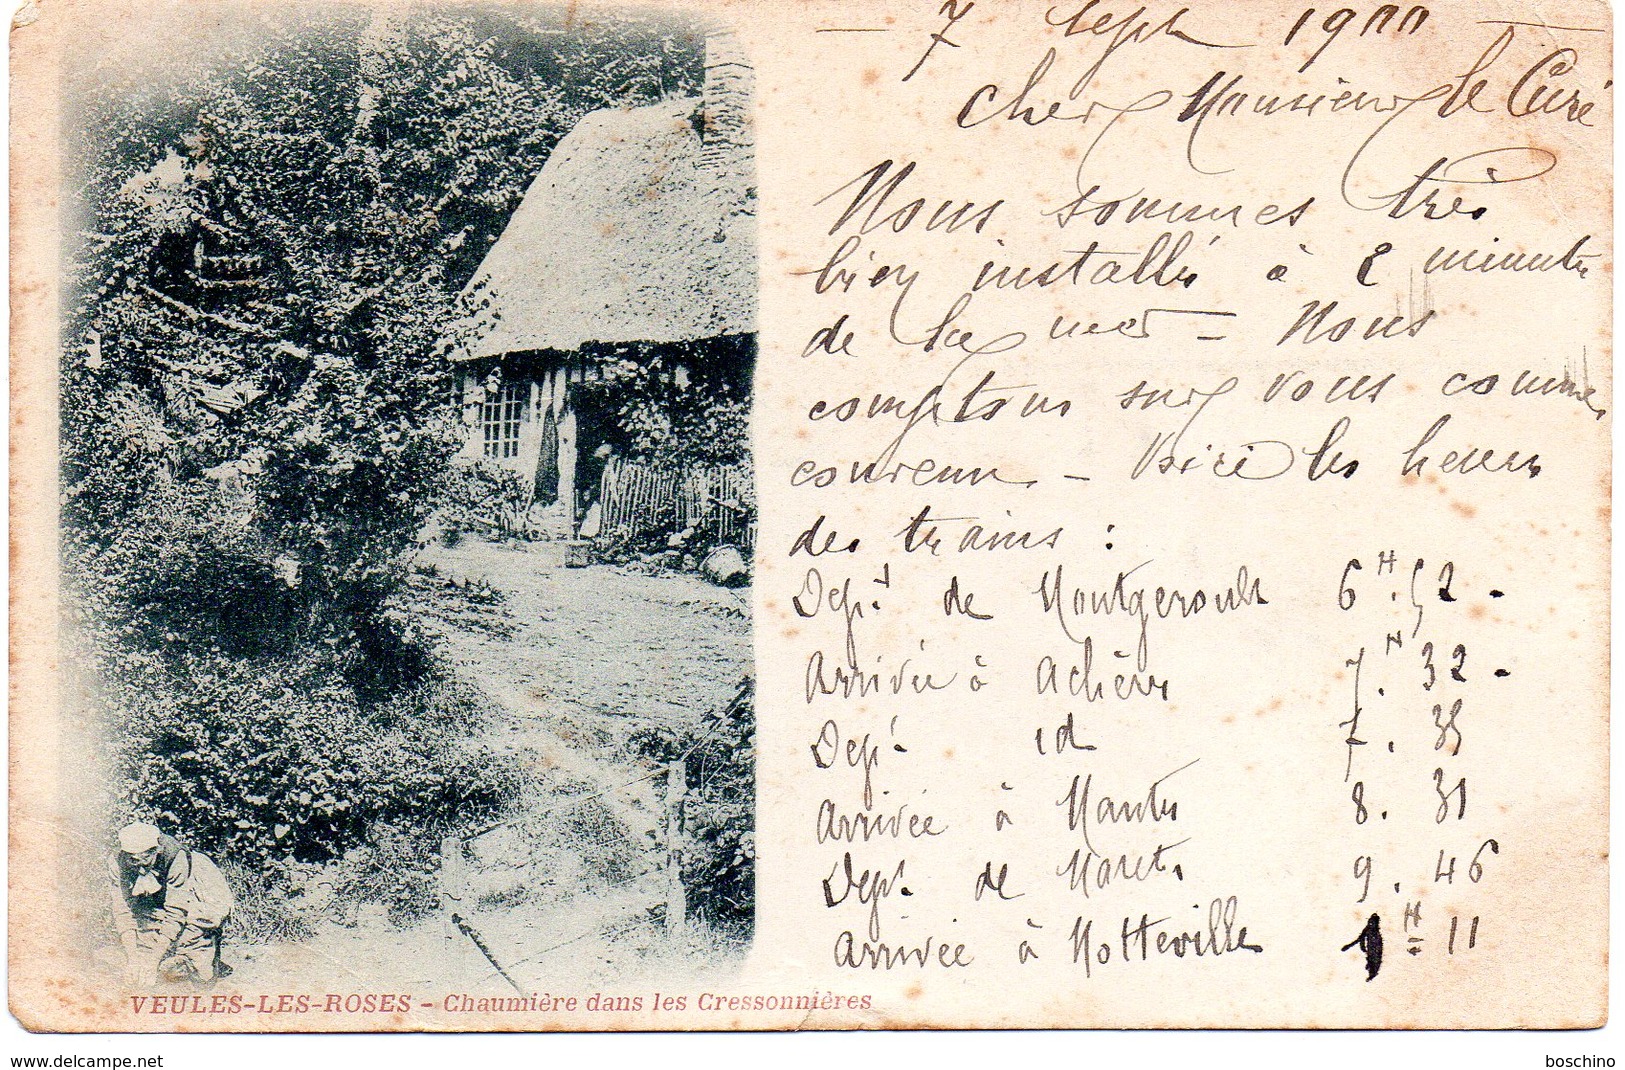 7 Sept 1900
Cher Monsieur le Curé
Nous sommes très
bien installés à 2 minutes
de la mer – Nous
comptons sur vous comme
convenu. – Voici les heures
des trains :
Dept de Montgeroult 6H.52 -
Arrivée à Achères 7H.32 -
Dept id 7.35
Arrivée à Mantes 8.31
Dept de Mantes 9.46
Arrivée à Motteville 1H 11
VEULES-LES-ROSES - Chaumière dans les Cressonnières
www.delcampe.net
boschino